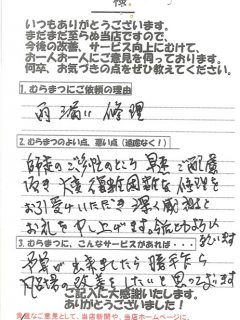 様
いつもありがとうございます。
まだまだ至らぬ当店ですので、
今後の改善、サービス向上にむけて、
お一人お一人にご意見を伺っております。
何卒、お気づきの点をぜひ教えてください。
1. むらまつにご依頼の理由
雨漏い 修理
2. むらまつのよい点、悪い点（遠慮なく！）
ご多忙のところ 早速 ご配慮
頂き 大変 復雑困難な 修理を
お引受けいただき 深く感謝と
お礼を申し上げます。
3. むらまつに、こんなサービスがあれば・・・
予算が出来ましたら 勝手から
風呂場の改善をしたいと思っております
ご記入に大感謝いたします。
ありがとうございました！
貴重なご意見として、当店新聞や、当店ホームページに、